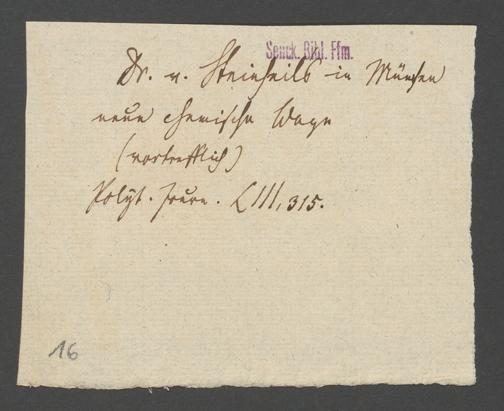 Senck. Bibl. Ffm.
Dr. v. Steinheils in München
neue chemische Wage
(vortrefflich)
Polyt. Journ. LIII, 315.
16